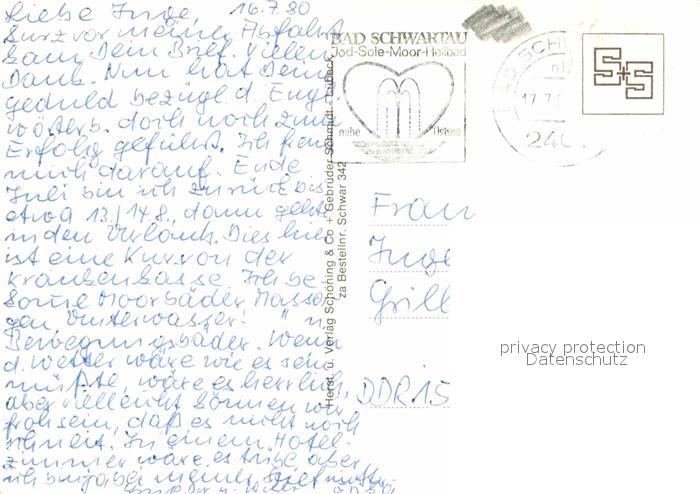 Liebe Inge, 16.7.80
kurz vor meiner Abfahrt
kam Dein Brief. Vielen
Dank. Nun hat Deine
geduld bezügl. d. Engl.
wörterb. doch noch zum
Erfolg geführt. Ich freue
mich darauf. Ende
Juli bin ich zurück bis
etwa 13./14.8., dann geht's
in den Urlaub. Dies hier
ist eine Kur von der
Krankenkasse. Ich be-
komme Moorbäder, Massa-
gen, Unterwasser- " u.
Bewegungsbäder. Wenn
d. Wetter wäre wie es sein
müßte, wäre es herrlich,
aber vielleicht können wir
froh sein, daß es nicht noch
schneit. In einem Hotel-
zimmer wäre es trübe aber
ich
BAD SCHWARTAU
Jod-Sole-Moor-Heilbad
nahe Ostsee
BAD SCH
17.7.
240
S+S
Herst. u. Verlag Schöning & Co + Gebrüder Schmidt - Lübeck
za Bestellnr. Schwar 342
Frau
Inge
Grill
DDR 15
privacy protection
Datenschutz